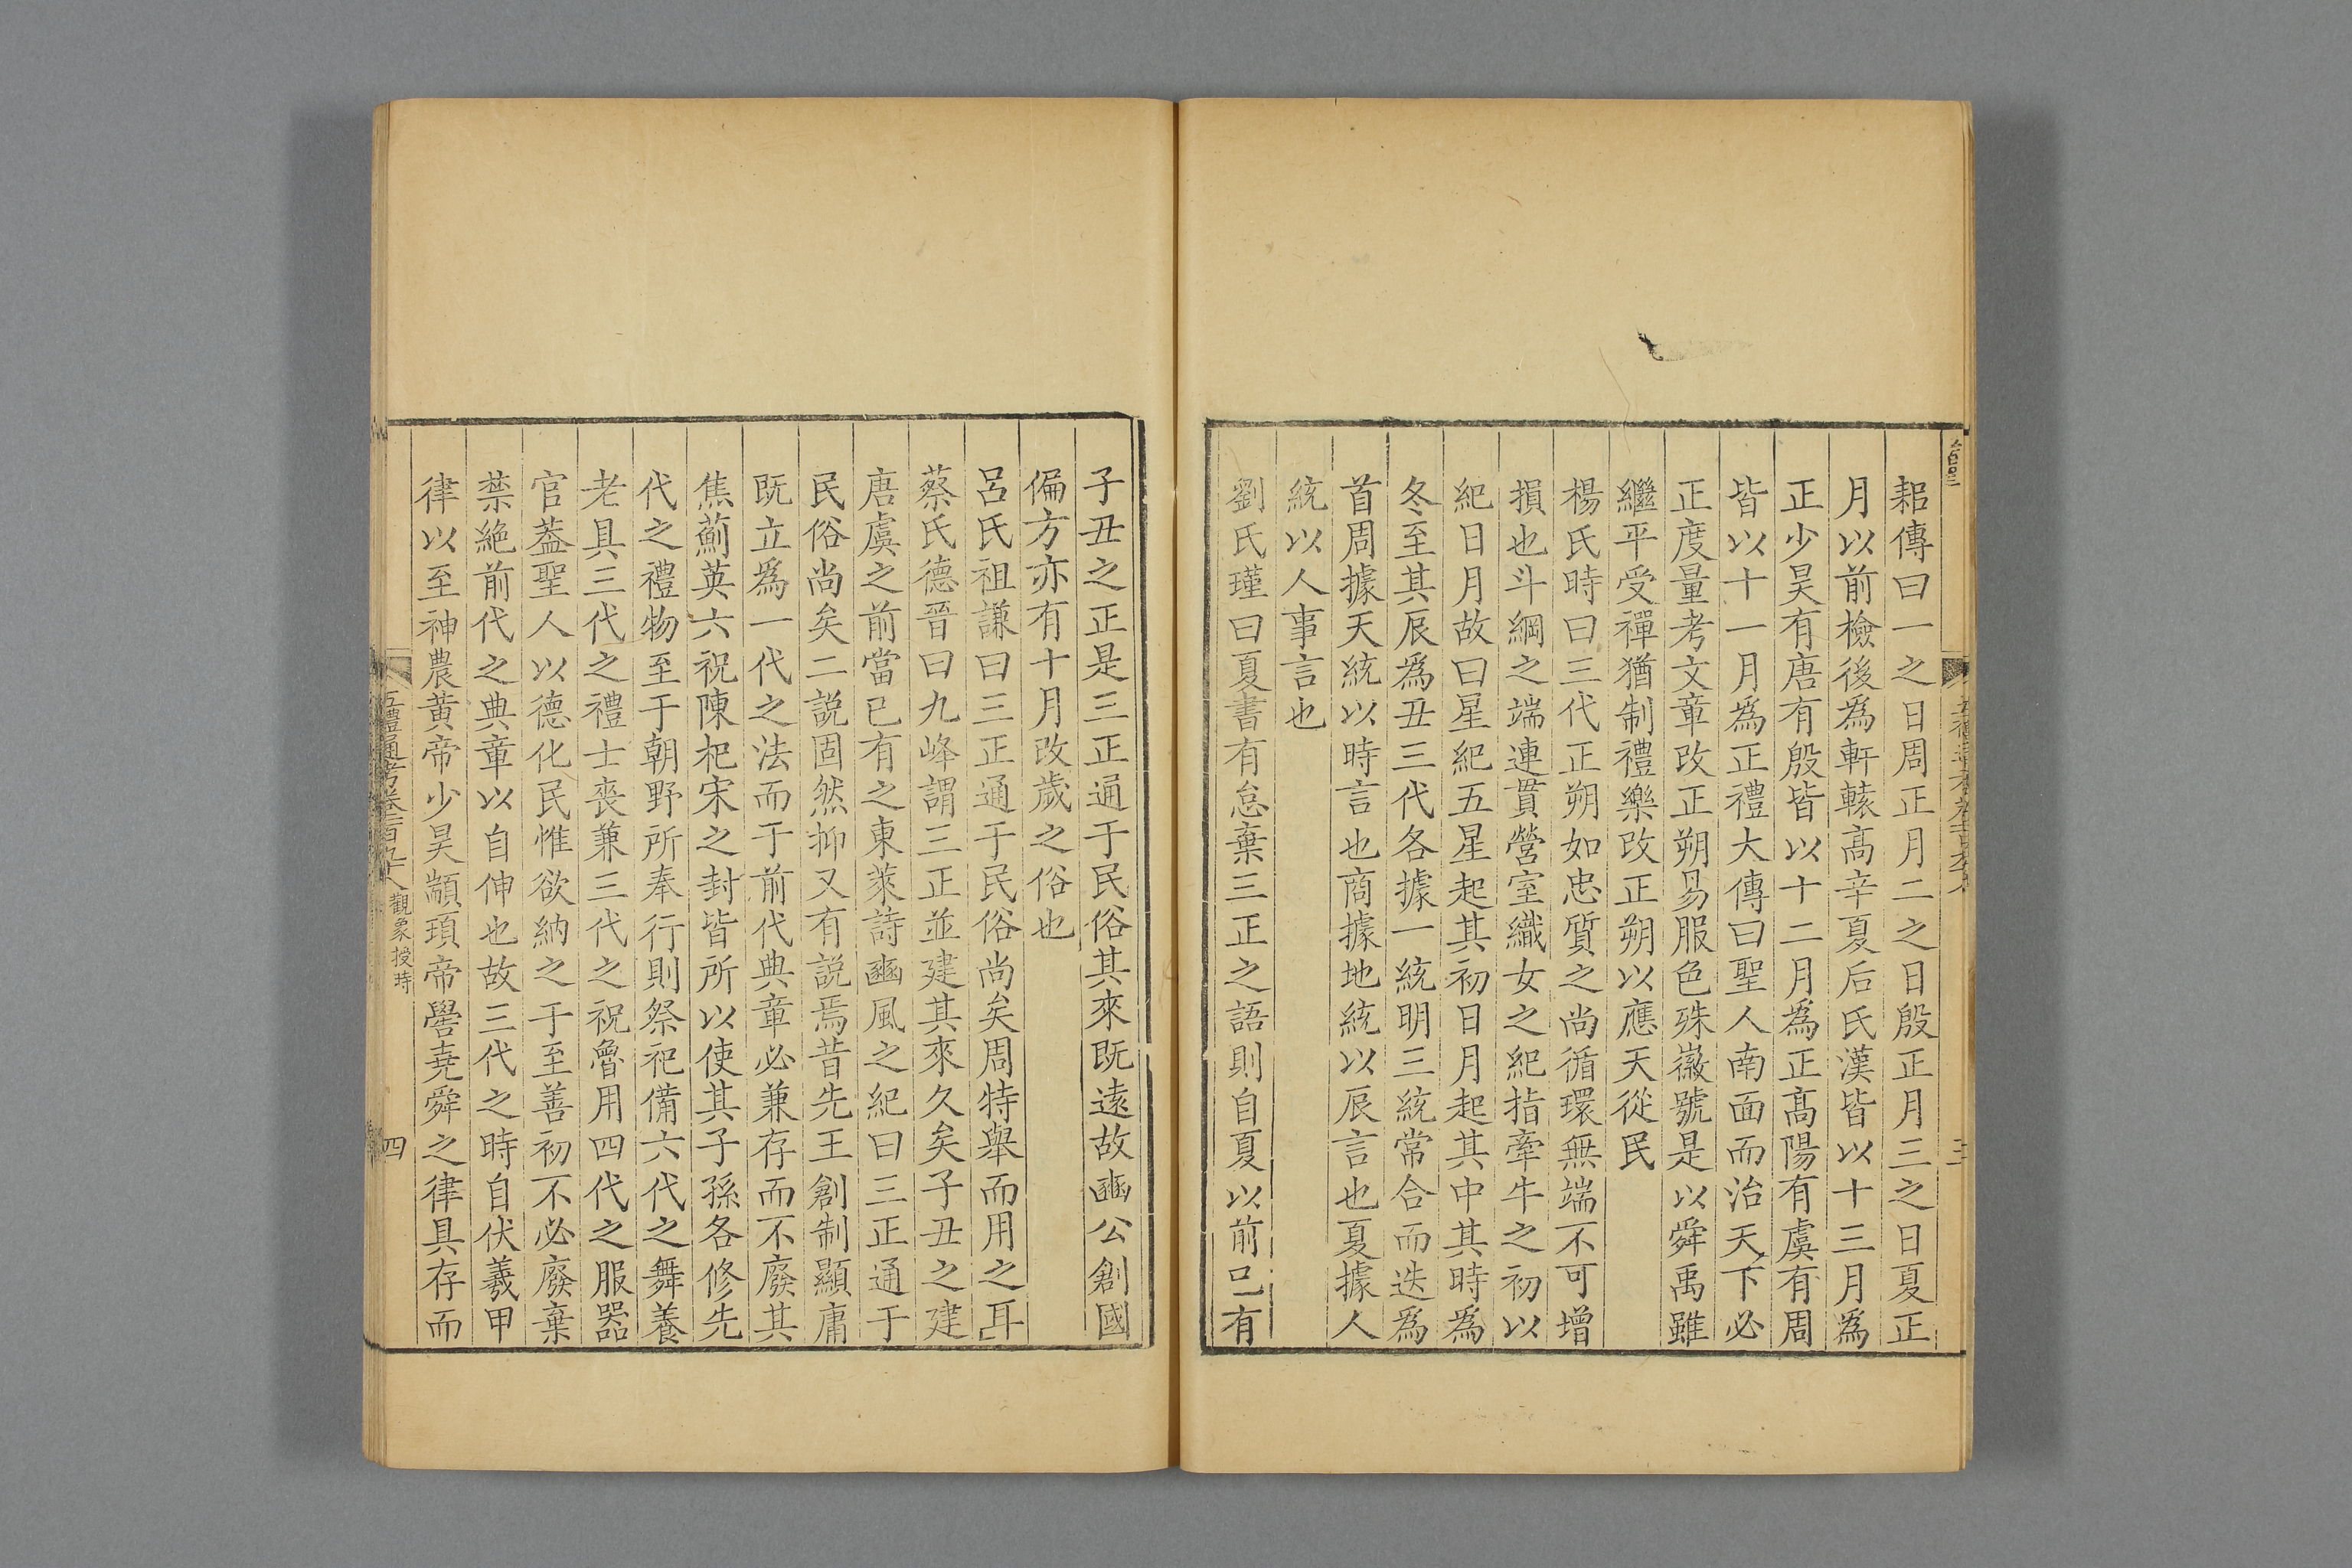 耜傳曰一之日周正月二之日殷正月三之日夏正
月以前檢後為軒轅髙辛夏后氏漢皆以十三月為
正少昊有唐有殷皆以十二月為正髙陽有虞有周
皆以十一月為正禮大傳曰聖人南面而治天下必
正度量考文章改正朔易服色殊徽號是以舜禹雖
繼平受禪猶制禮樂改正朔以應天從民
楊氏時曰三代正朔如忠質之尚循環無端不可增
損也斗綱之端連貫營室織女之紀指牽牛之初以
紀日月故曰星紀五星起其初日月起其中其時為
冬至其辰為丑三代各據一統明三統常合而迭為
首周據天統以時言也商據地統以辰言也夏據人
統以人事言也
劉氏瑾曰夏書有怠棄三正之語則自夏以前已有
子丑之正是三正通于民俗其來既遠故豳公創國
偏方亦有十月改歲之俗也
呂氏祖謙曰三正通于民俗尚矣周特舉而用之耳
蔡氏德晉曰九峰謂三正並建其來久矣子丑之建
唐虞之前當已有之東萊詩豳風之紀曰三正通于
民俗尚矣二説固然抑又有説焉昔先王創制顯庸
既立為一代之法而于前代典章必兼存而不廢其
焦薊英六祝陳杞宋之封皆所以使其子孫各修先
代之禮物至于朝野所奉行則祭祀備六代之舞養
老具三代之禮士喪兼三代之祝魯用四代之服器
官蓋聖人以德化民惟欲納之于至善初不必廢棄
禁絶前代之典章以自伸也故三代之時自伏羲甲
律以至神農黄帝少昊顓頊帝嚳堯舜之律具存而
五禮通考卷一百九十八 觀象授時 四